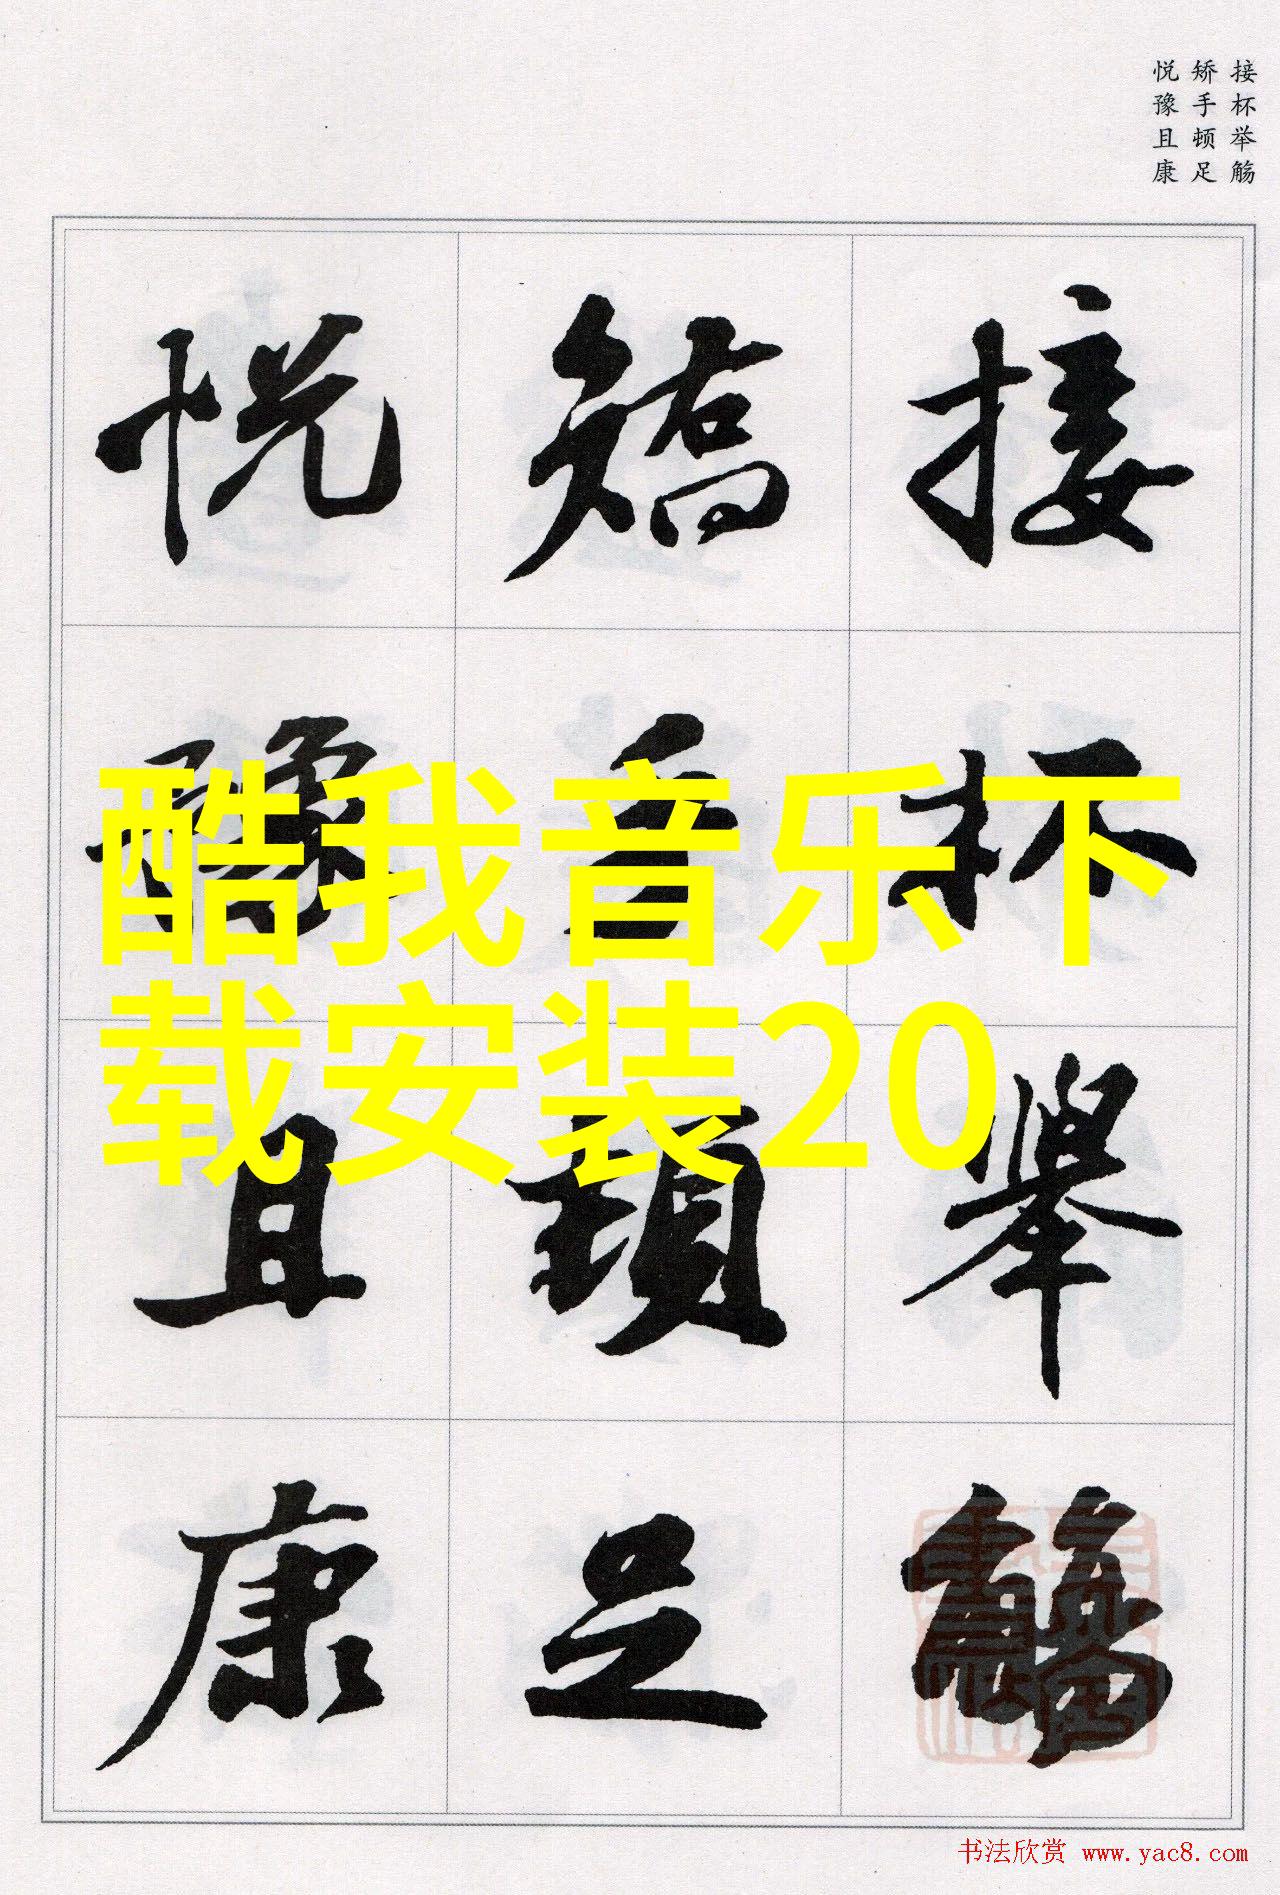 接杯举觞
矫手顿足
悦豫且康
接杯舉觴
矯手頓足
悦豫且康
酷我音乐下
载安装20
书法欣赏 www.yac8.com